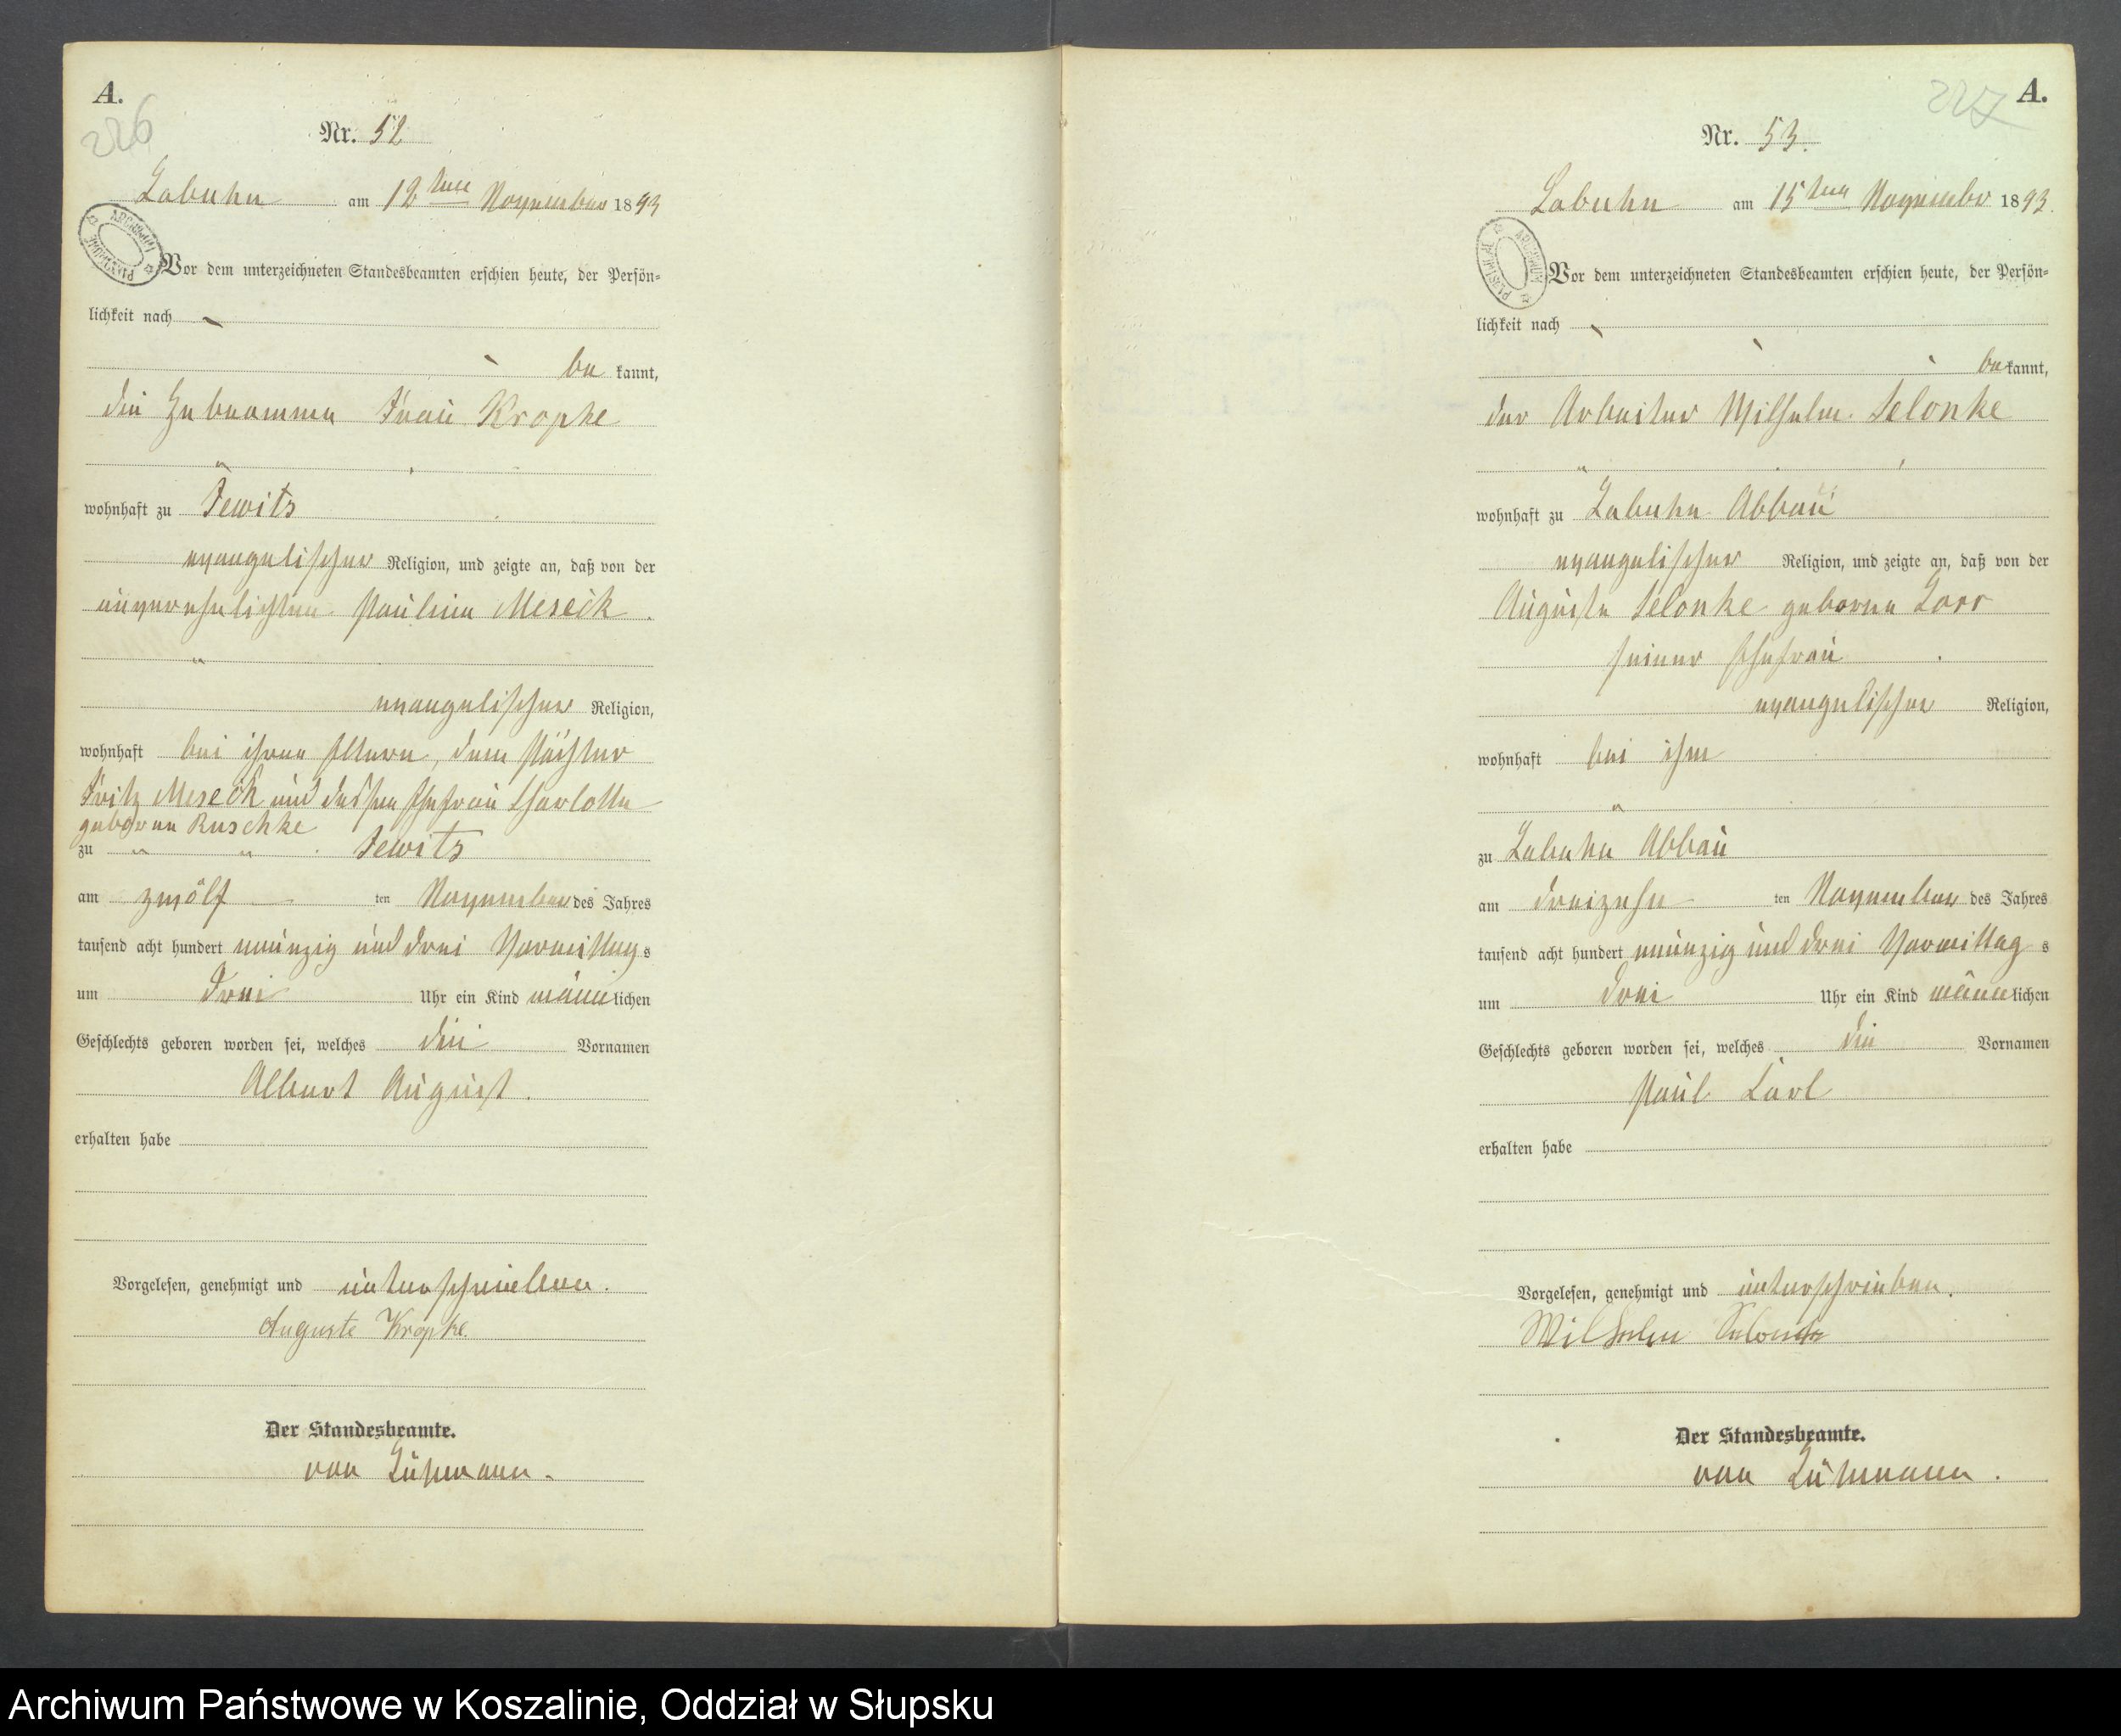 A.
226
Nr. 52
Labuhn am 12ten November 1893
Vor dem unterzeichneten Standesbeamten erschien heute, der Persön=
lichkeit nach
be kannt,
die Hebeamme Frau Kropke
wohnhaft zu Jewits
evangelischer Religion, und zeigte an, daß von der
unverehelichten Pauline Meseck
evangelischer Religion,
wohnhaft bei ihren Eltern, dem Pächter
Fritz Meseck und dessen Ehefrau Charlotte
geborene Ruschke
zu Jewits
am zwölf ten November des Jahres
tausend acht hundert neunzig und drei Vormittags
um drei Uhr ein Kind männlichen
Geschlechts geboren worden sei, welches die Vornamen
Albert August.
erhalten habe
Vorgelesen, genehmigt und unterschrieben.
Auguste Kropke.
Der Standesbeamte.
von
A.
227
Nr. 53.
Labuhn am 15ten November 1893.
Vor dem unterzeichneten Standesbeamten erschien heute, der Persön=
lichkeit nach
bekannt,
der Arbeiter Wilhelm Selonke
wohnhaft zu Labuhn Abbau
evangelischer Religion, und zeigte an, daß von der
Auguste Selonke geborne
seiner Ehefrau
evangelischer Religion,
wohnhaft bei ihm
zu Labuhn Abbau
am dreizehn ten November des Jahres
tausend acht hundert neunzig und drei Vormittag s
um drei Uhr ein Kind männlichen
Geschlechts geboren worden sei, welches die Vornamen
Paul Carl
erhalten habe
Vorgelesen, genehmigt und unterschrieben.
Wilhelm Selonke
Der Standesbeamte.
von
Archiwum Państwowe w Koszalinie, Oddział w Słupsku